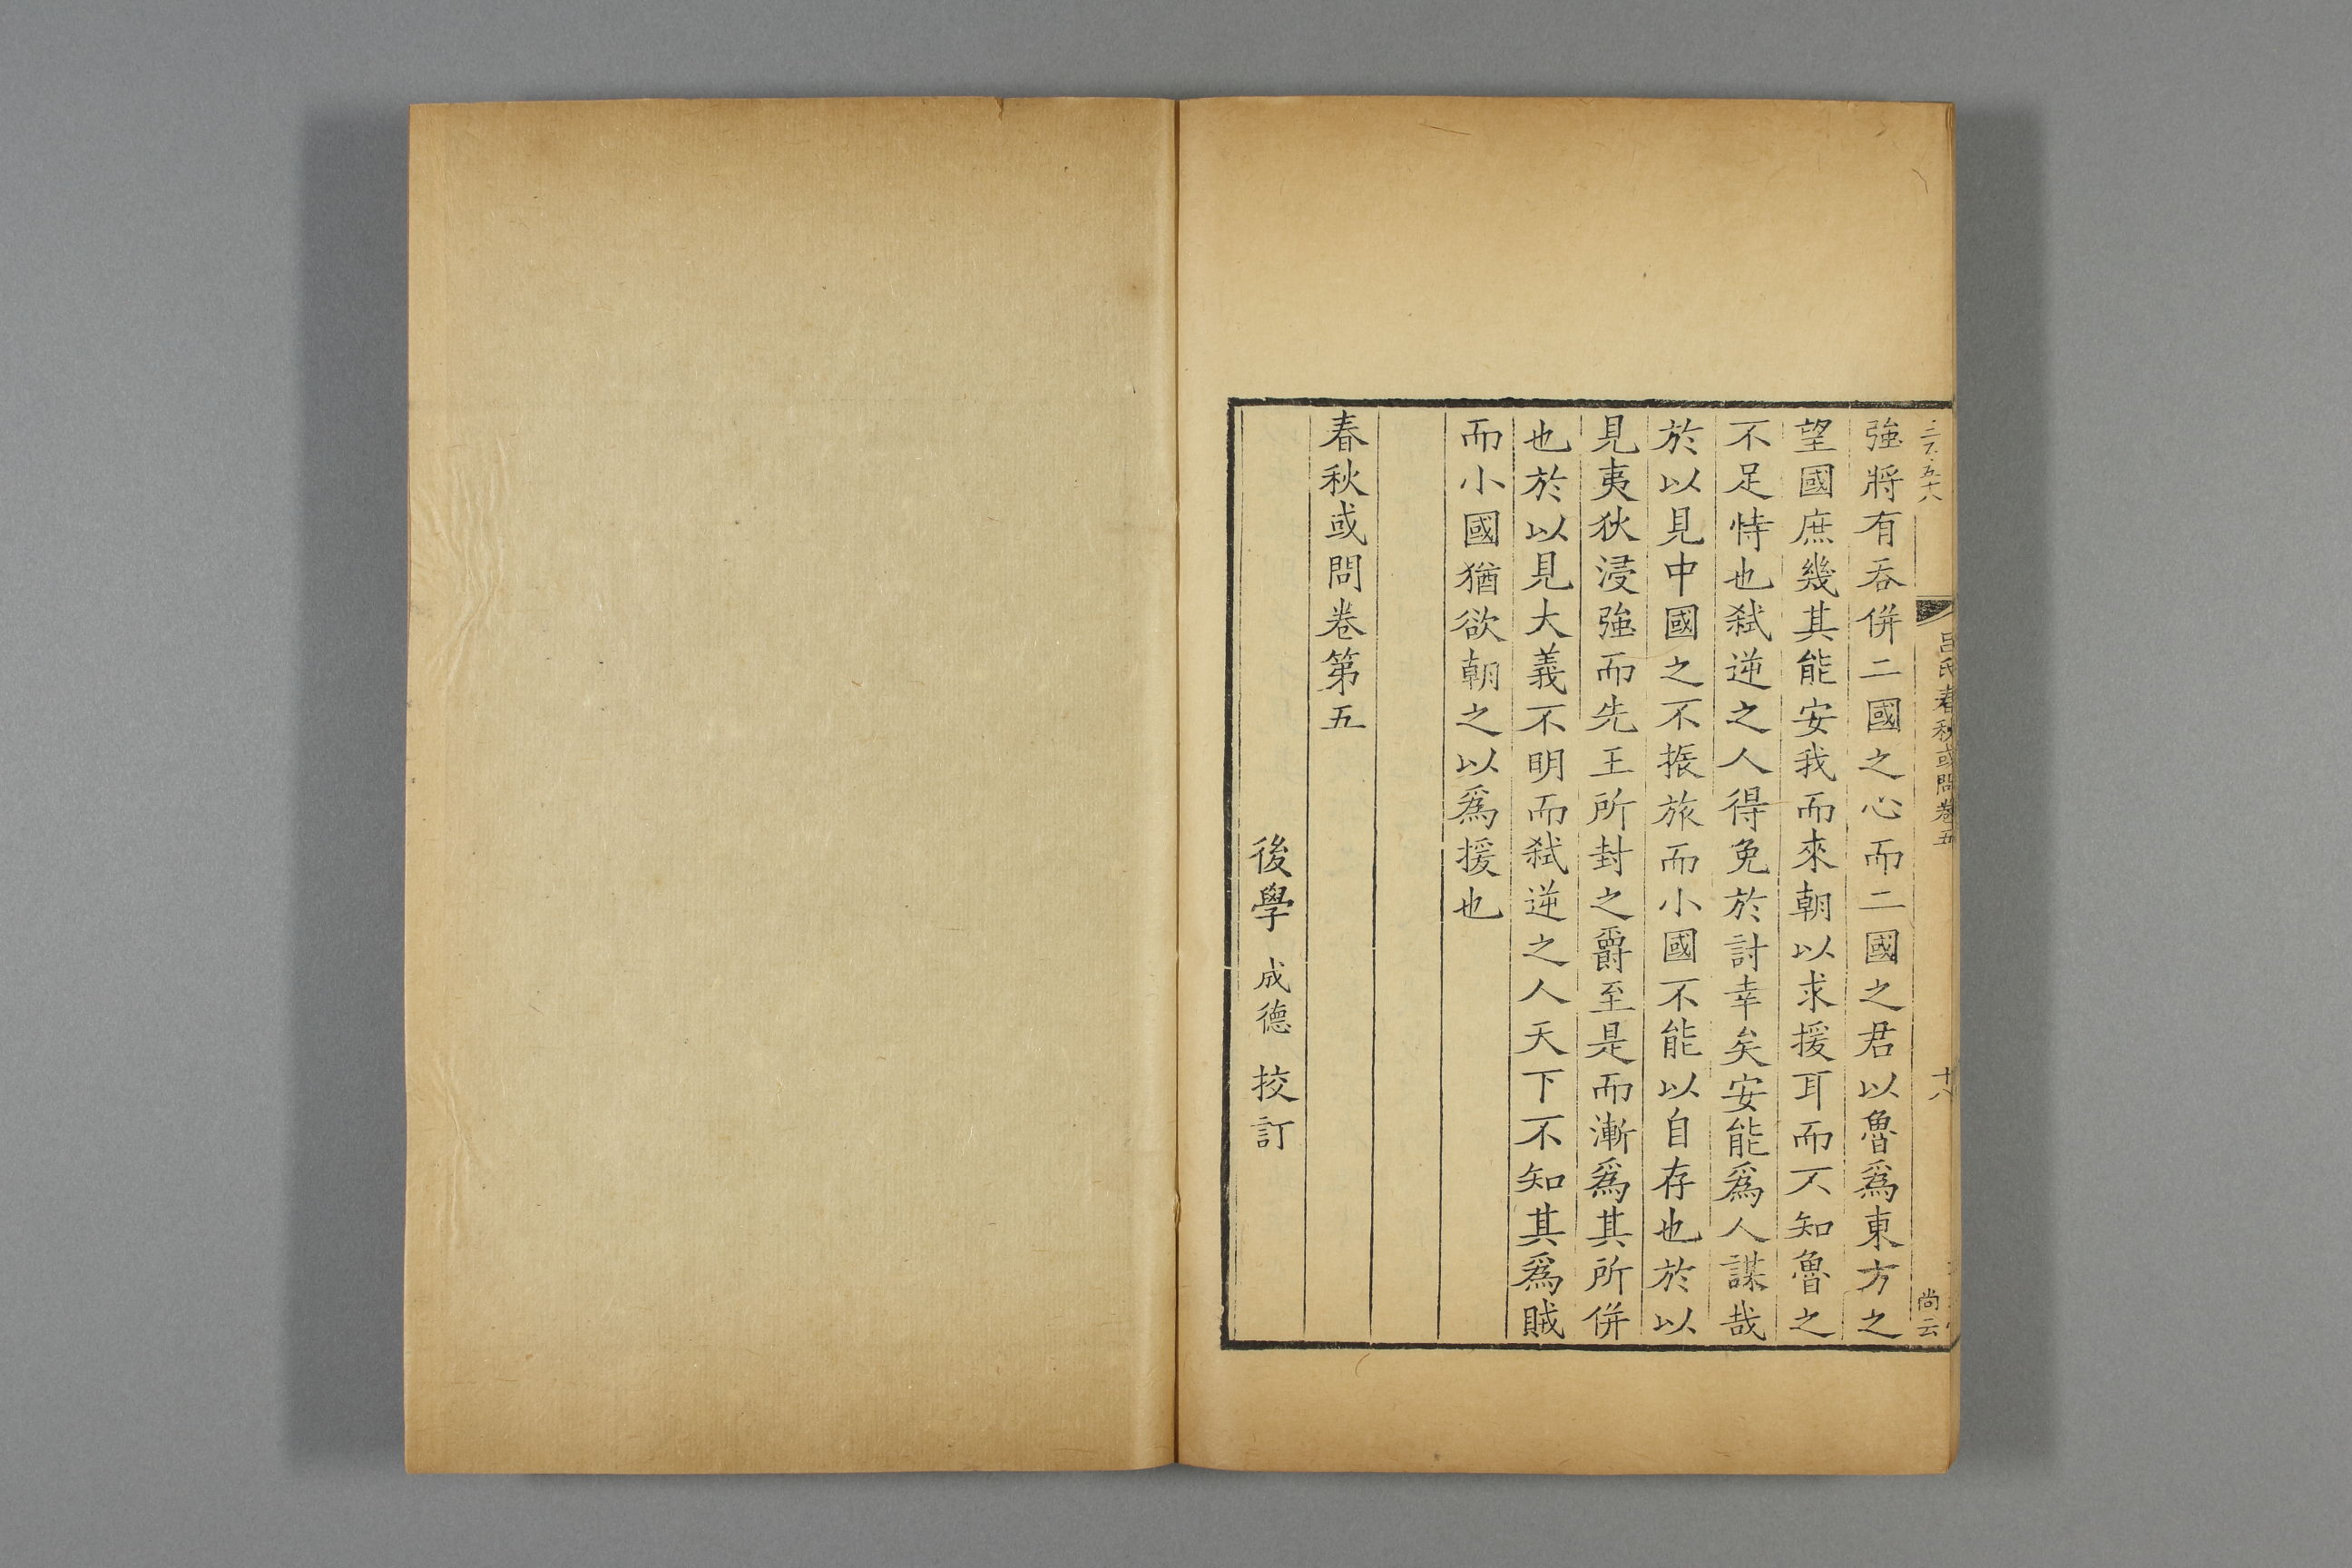 呂氏春秋或問卷五
十八
尚云
強將有吞併二國之心而二國之君以魯爲東方之
望國庶幾其能安我而來朝以求援耳而不知魯之
不足恃也弑逆之人得免於討幸矣安能爲人謀哉
於以見中國之不振旅而小國不能以自存也於以
見夷狄浸強而先王所封之爵至是而漸爲其所併
也於以見大義不明而弑逆之人天下不知其爲賊
而小國猶欲朝之以爲援也
春秋或問卷第五
後學 成德 挍訂